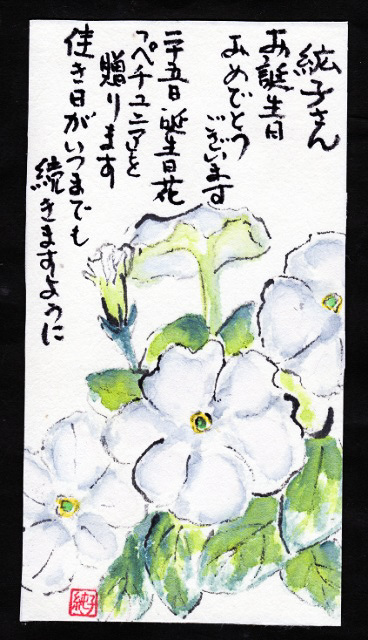 紘子さん
お誕生日
おめでとう
ございます
二十五日誕生日花
"ペチュニア"を
贈ります
佳き日がいつまでも
続きますように
純子